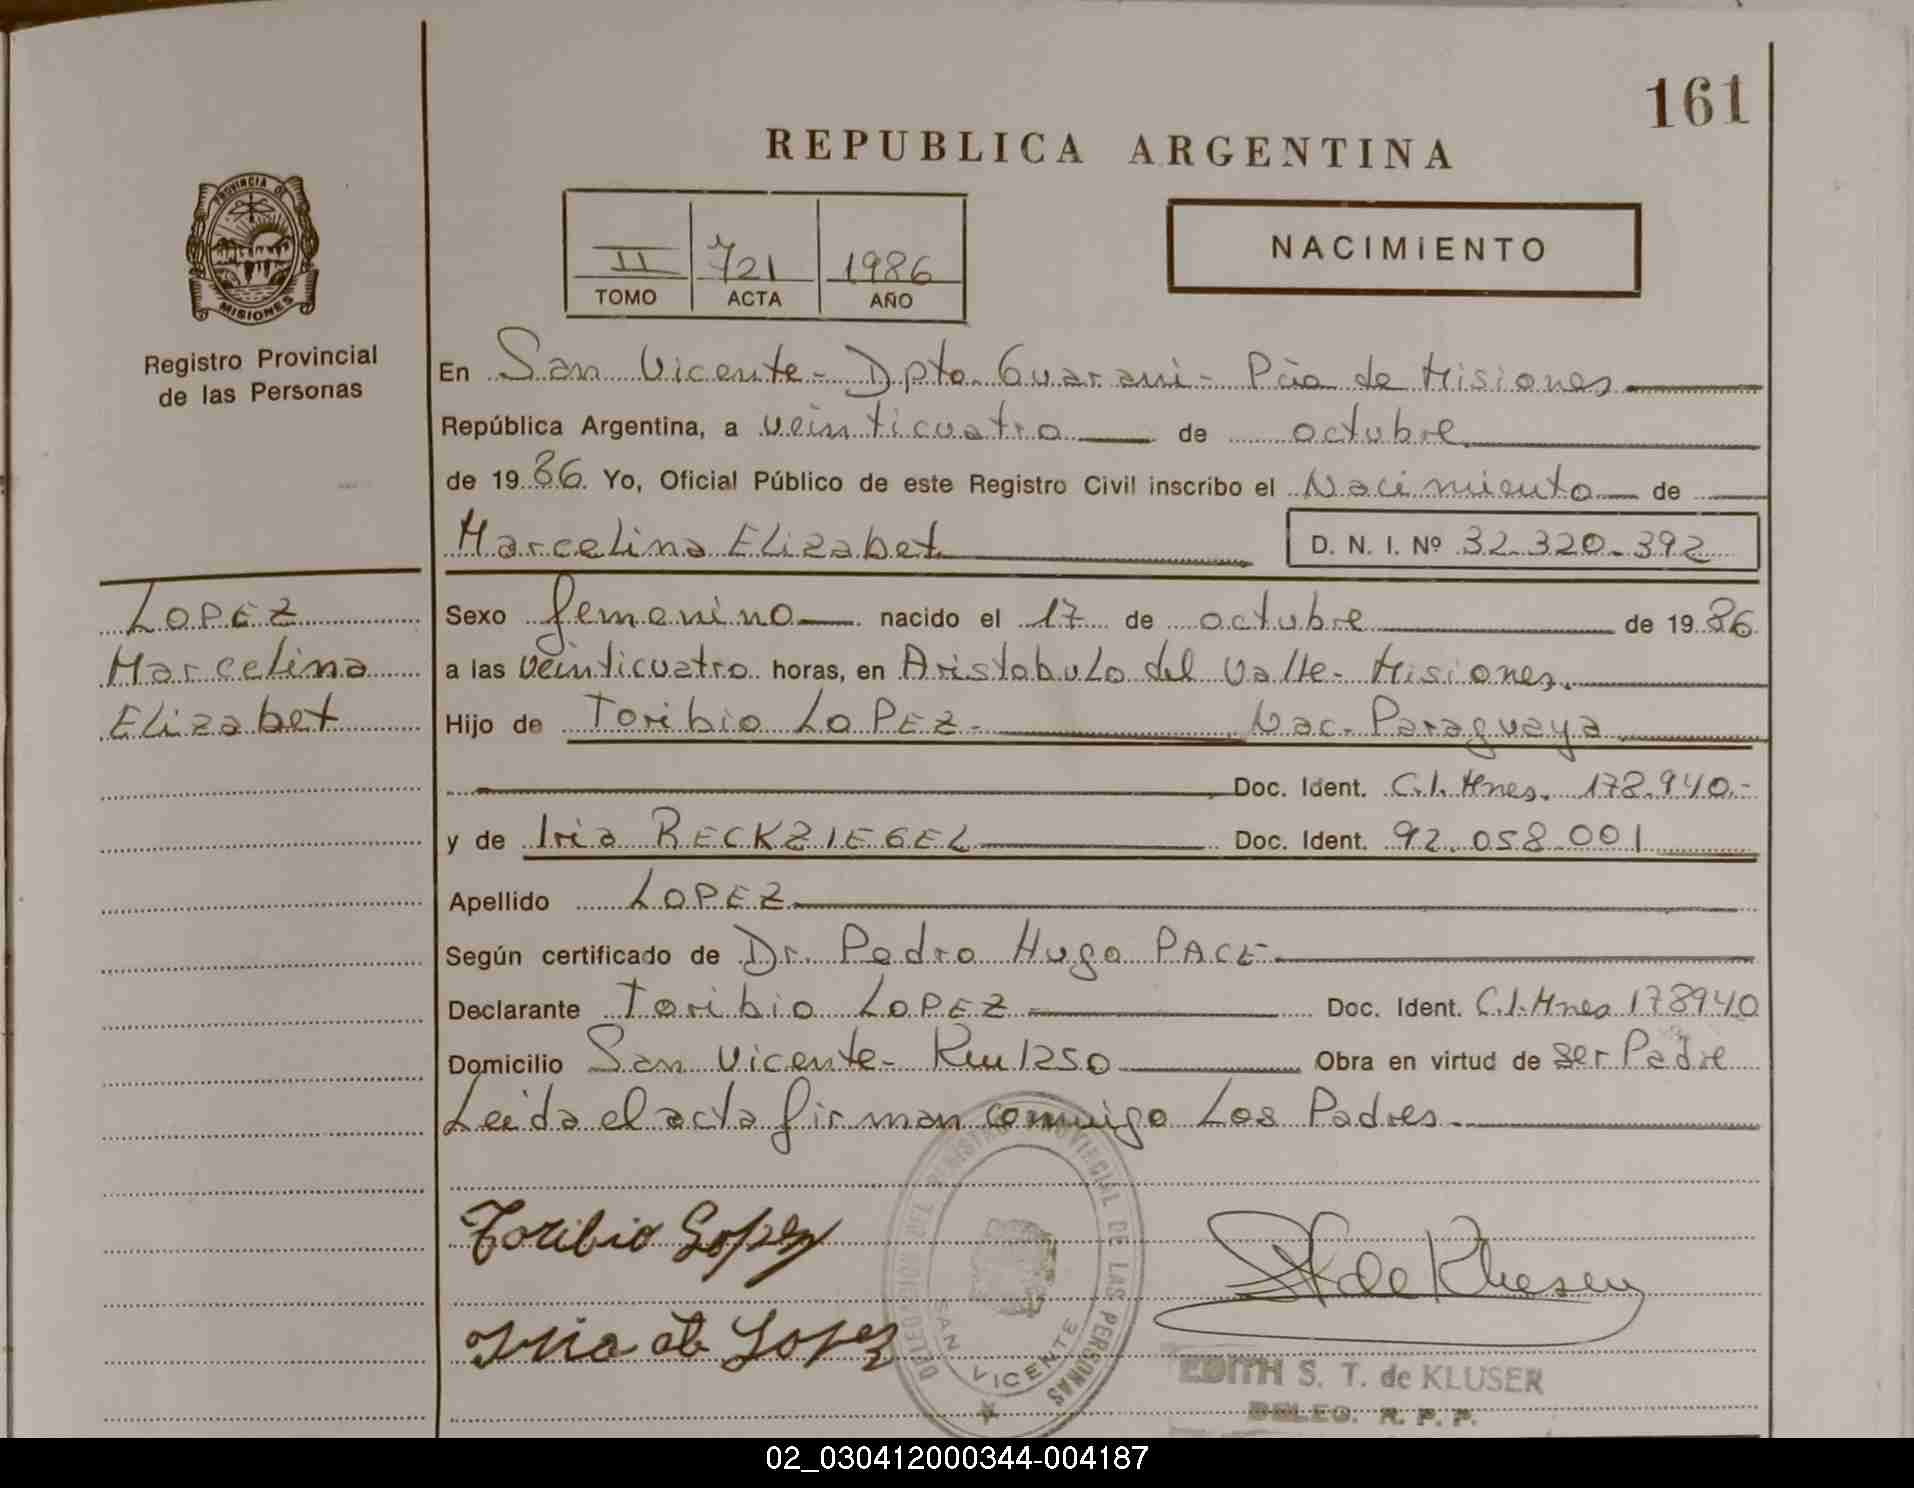 161
REPUBLICA ARGENTINA
PROVINCIA DE
MISIONES
Registro Provincial
de las Personas
II 721 1986
TOMO ACTA AÑO
NACIMIENTO
En San Vicente - Dpto. Guaraní - Pcia de Misiones
República Argentina, a veinticuatro de octubre
de 1986 Yo, Oficial Público de este Registro Civil inscribo el Nacimiento de
Marcelina Elizabet D. N. I. Nº 32.320.392
LOPEZ
Marcelina
Elizabet
Sexo femenino nacido el 17 de octubre de 1986
a las veinticuatro horas, en Aristobulo del Valle - Misiones.
Hijo de Toribio LOPEZ - Nac. Paraguaya
Doc. Ident. C.I. Mnes. 178.940.-
y de Iria RECKZIEGEL Doc. Ident. 92.058.001
Apellido LOPEZ
Según certificado de Dr. Pedro Hugo PACE
Declarante Toribio LOPEZ Doc. Ident. C.I. Mnes 178940
Domicilio San Vicente - Km 1250 Obra en virtud de ser Padre
Leida el acta firman conmigo Los Padres.
Toribio Lopez
Iria de Lopez
DELEGACION DEL REGISTRO PROVINCIAL DE LAS PERSONAS
SAN VICENTE
de Kluser
EDITH S. T. de KLUSER
DELEG. R. P. P.
02_030412000344-004187